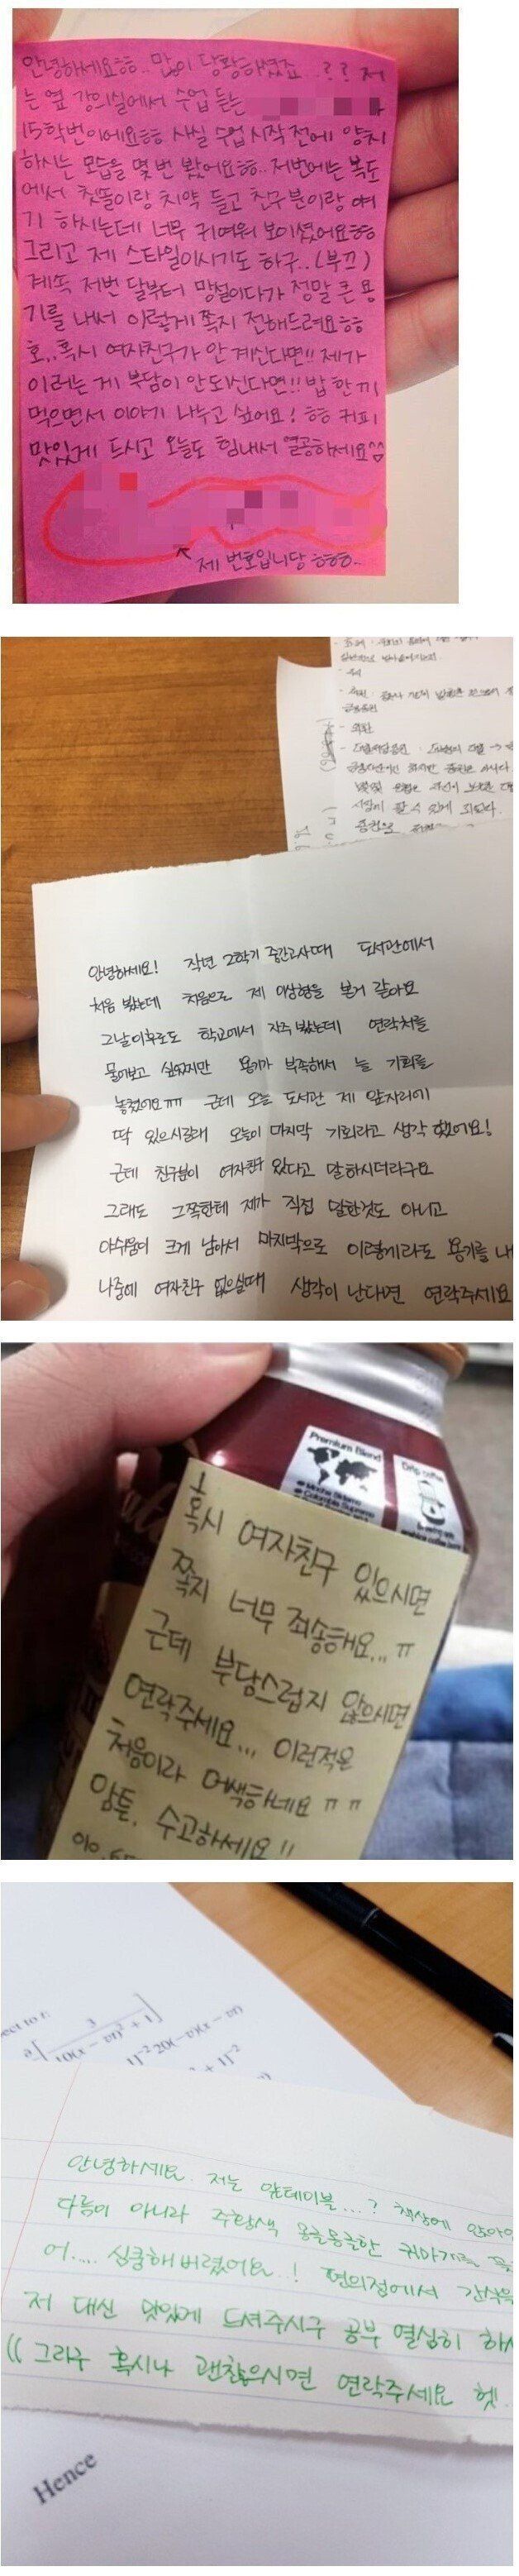 안녕하세요ㅎㅎ.. 많이 당황하셨죠..?? 저
는 옆 강의실에서 수업 듣는
15학번이에요ㅎㅎ 사실 수업 시작 전에 양치
하시는 모습을 몇번 봤어요ㅎㅎ.. 저번에는 복도
에서 칫똘이랑 치약 들고 친구분이랑 얘
기 하시는데 너무 귀여워 보이셨어요ㅎㅎ
그리고 제 스타일이시기도 하구..(부끄)
계속 저번 달부터 망설이다가 정말 큰 용
기를 내서 이렇게 쪽지 전해드려요ㅎㅎ
호,.혹시 여자친구가 안 계신다면!! 제가
이러는 게 부담이 안되신다면!! 밥 한끼
먹으면서 이야기 나누고 싶어요! ㅎㅎ 커피
맛있게 드시고 오늘도 힘내서 열공하세요^^
제 번호입니당 ㅎㅎㅎ..
안녕하세요! 작년 2학기 중간고사때 도서관에서
처음 봤는데 처음으로 제 이상형을 본거 같아요
그날이후로도 학교에서 자주 봤는데 연락처를
물어보고 싶었지만 용기가 부족해서 늘 기회를
놓쳤어요ㅠㅠ 근데 오늘 도서관 제 앞자리에
딱 있으시길래 오늘이 마지막 기회라고 생각 했어요!
근데 친구분이 여자친구 있다고 말하시더라구요
그래도 그쪽한테 제가 직접 말한것도 아니고
아쉬움이 크게 남아서 마지막으로 이렇게라도 용기를 내
나중에 여자친구 없으실때 생각이 난다면 연락주세요
Premium Blend
Drip coffee
혹시 여자친구 있으시면
쪽지 너무 죄송해요...ㅠ
근데 부담스럽지 않으시면
연락주세요... 이런적은
처음이라 어색하네요 ㅠㅠ
암튼, 수고하세요!!
010.65
안녕하세요. 저는 앞테이블...? 책상에 앉아있
다름이 아니라 주황색 몽글몽글한 귀마개를 꽂
어.... 심쿵해버렸어요..! 편의점에서 간식을
저 대신 맛있게 드셔주시구 공부 열심히 하시
(( 그라구 혹시나 괜찮으시면 연락주세요 헷.
Hence